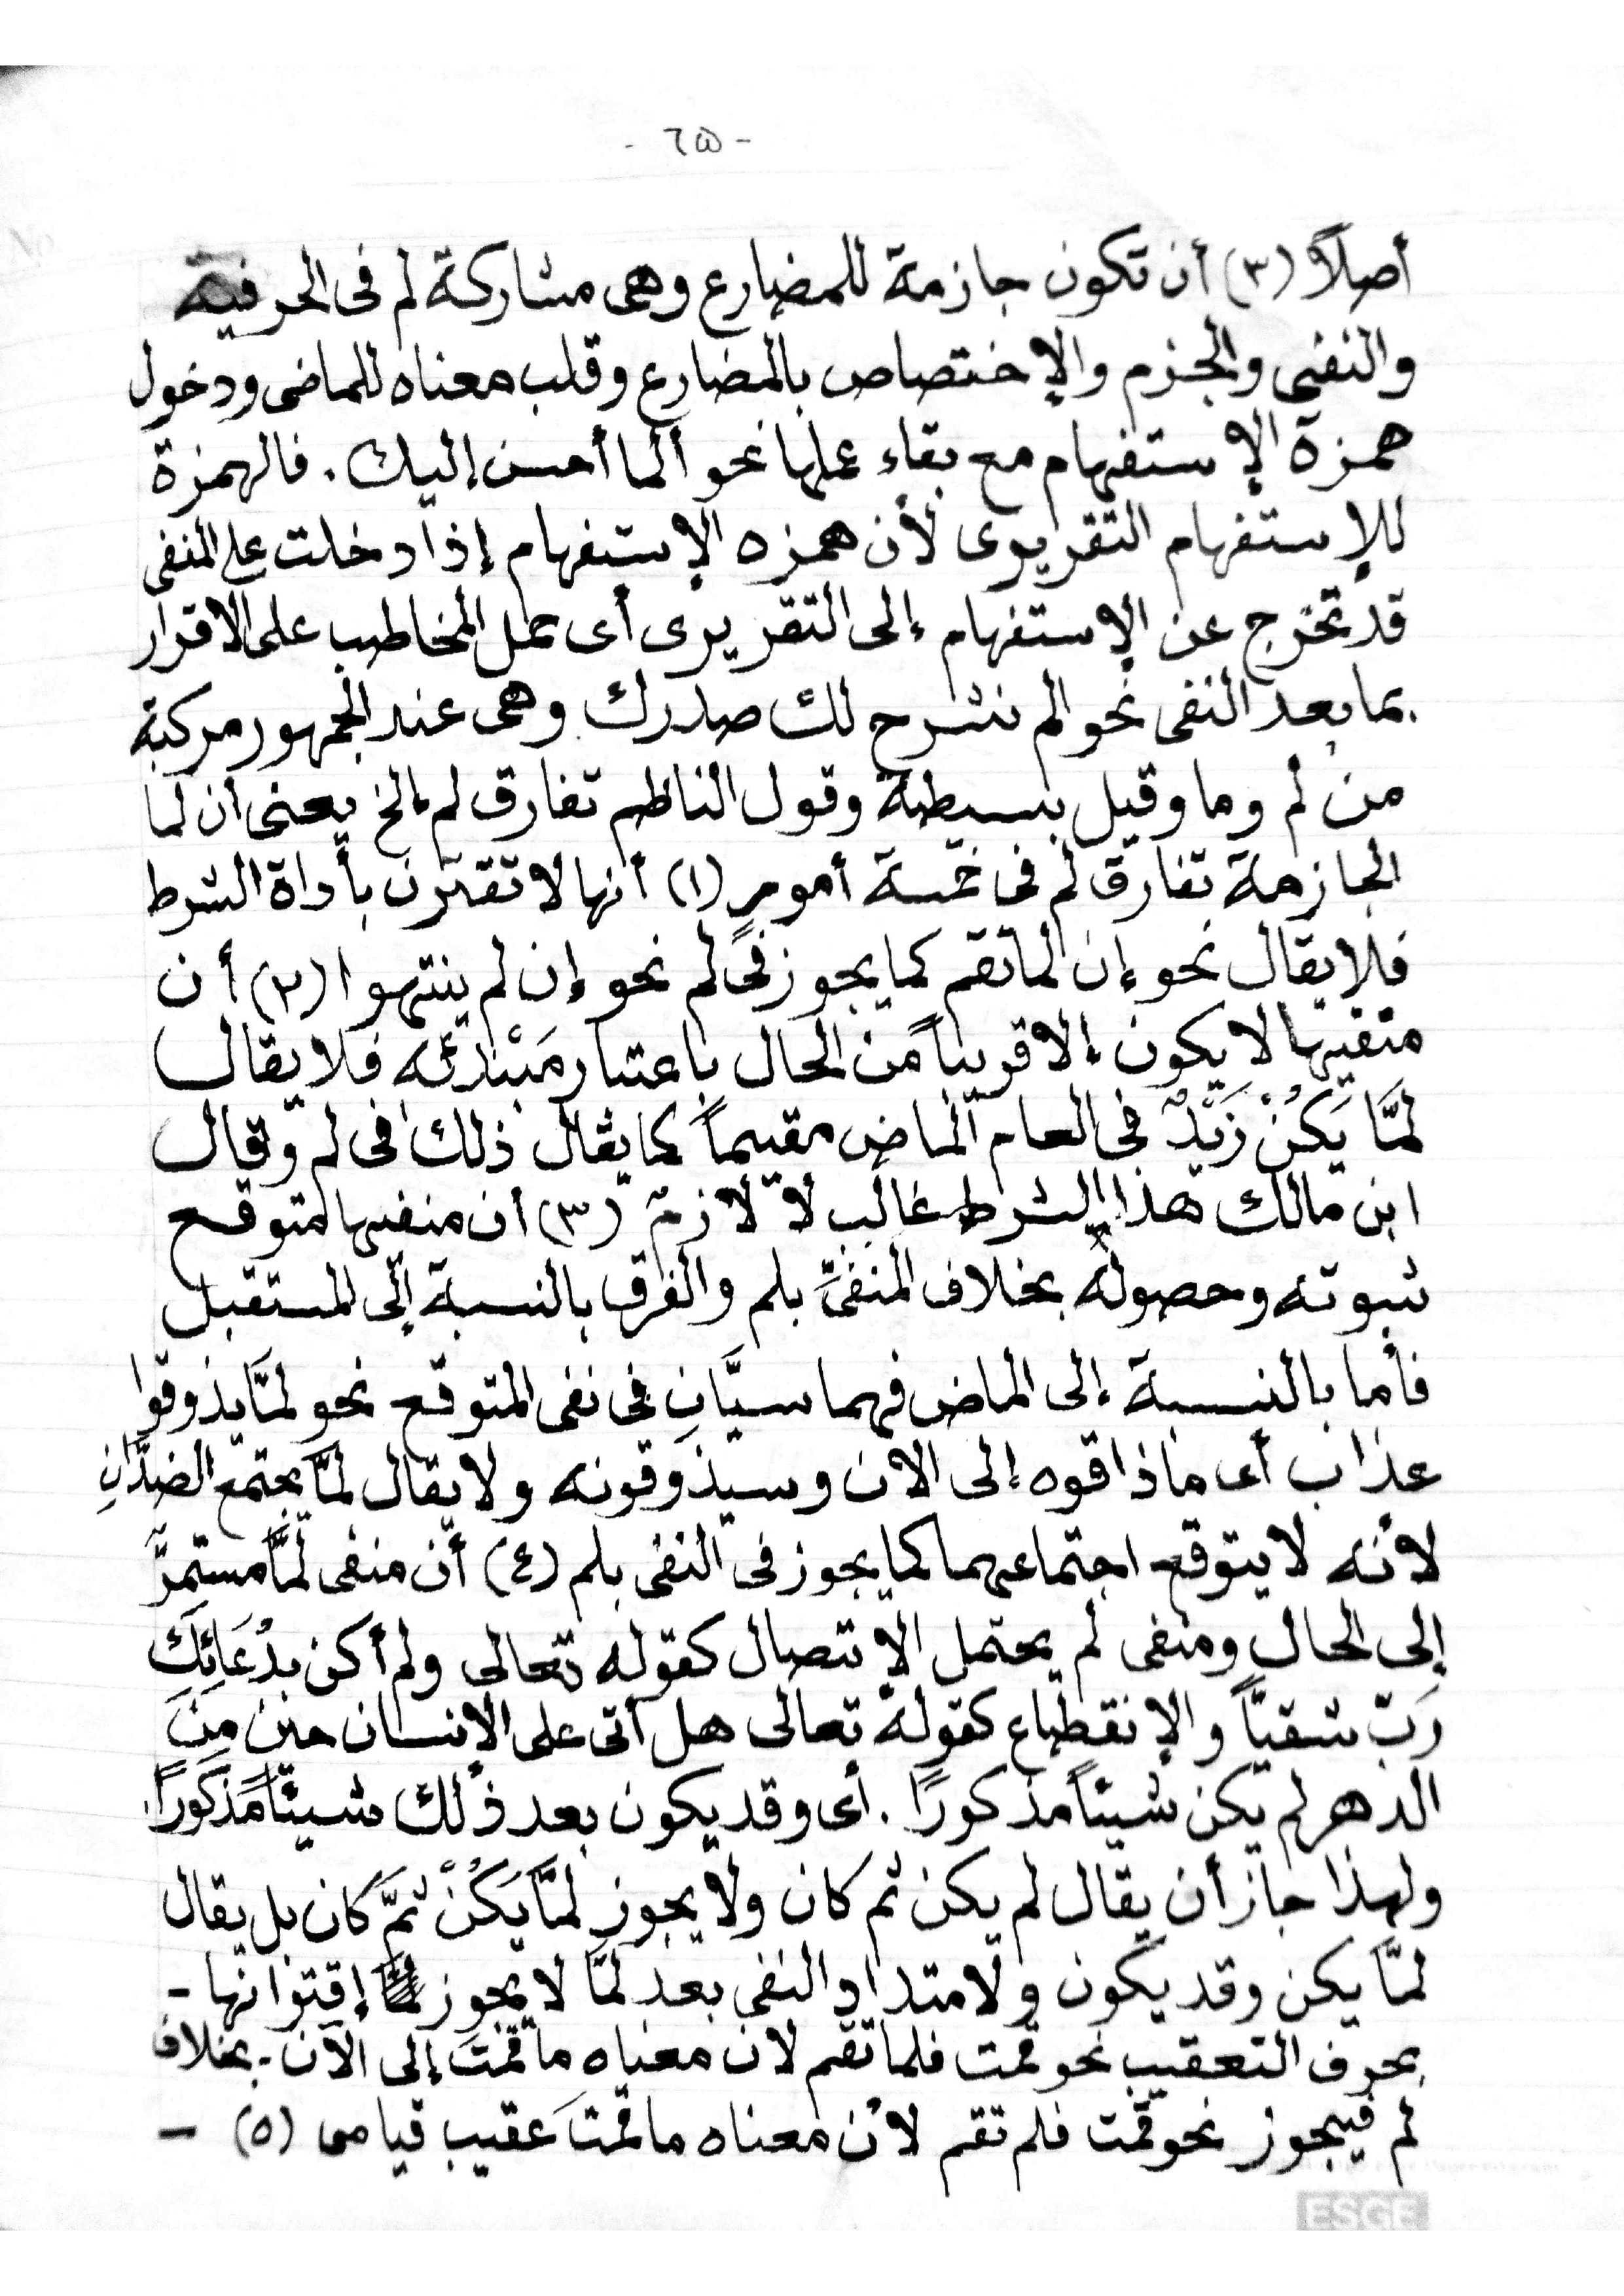 - ٦٥ -
أصلاً (٣) أن تكون جازمة للمضارع وهى مشاركة لم فى الحرفية
والنفى والجزم والإختصاص بالمضارع وقلب معناه للماضى ودخول
همزة الإستفهام مع بقاء عملها نحو ألما أحسن إليك. فالهمزة
للإستفهام التقريرى لأن همزه الإستفهام إذا دخلت على المنفى
قد تخرج عن الإستفهام إلى التقريرى أى حمل المخاطب على الاقرار
بما بعد النفى نحو الم نشرح لك صدرك وهى عند الجمهور مركبة
من لم وما وقيل بسيطة وقول الناظم تفارق لم إلخ يعنى أن لما
الجازمة تفارق لم فى خمسة أمور (١) أنها لا تقترن بأداة الشرط
فلا يقال نحو إن لما تقم كما يجوز فى لم نحو إن لم ينتهوا (٢) أن
منفيها لا يكون إلا قريباً من الحال باعتبار مَبْتدئه فلا يقال
لمَّا يَكُنْ زَيْدٌ فى العام الماض مقيماً كما يقال ذلك فى لم وقال
ابن مالك هذا الشرط غالب لا لازم (٣) أن منفيها متوقع
ثبوته وحصوله بخلاف المنفىّ بلم والفرق بالنسبة إلى المستقبل
فأما بالنسبة إلى الماض فهما سيَّانِ فى نفى المتوقع نحو لمَّا يذوقوا
عذاب أى ماذاقوه إلى الان وسيذوقونه ولا يقال لمَّا يجتمع الضدَّانِ
لأنه لا يتوقع اجتماعهما كما يجوز فى النفى بلم (٤) أن منفى لمَّا مستمرَّ
إلى الحال ومنفى لم يحتمل الإتصال كقوله تعالى ولم أكن بدُعَائِكَ
رَبّ شقيّاً والإنقطاع كقوله تعالى هل أتى على الإنسان حين مِنَ
الدهر لم يكن شيئاً مذكورًا. أى وقد يكون بعد ذلك شيئاً مَذكورًا.
ولهذا جاز أن يقال لم يكن ثم كان ولا يجوز لمَّا يَكُنْ ثمَّ كان بل يقال
لمَّا يكن وقد يكون ولامتداد النفى بعد لمَّا لا يجوز إقترانها -
بحرف التعقيب نحو قمت فلما تقم لان معناه ما قمتَ إلى الآن. بخلاف
لم فيجوز نحو قمت فلم تقم لأن معناه ما قمتَ عقيب قيامى (٥) -
ESGE